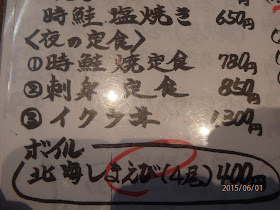 時鮭 塩焼き 650円
<夜の定食>
①時鮭焼定食 780円
②刺身定食 850円
③イクラ丼 1300円
ボイル
北海しまえび(4尾)400円
2015/06/01